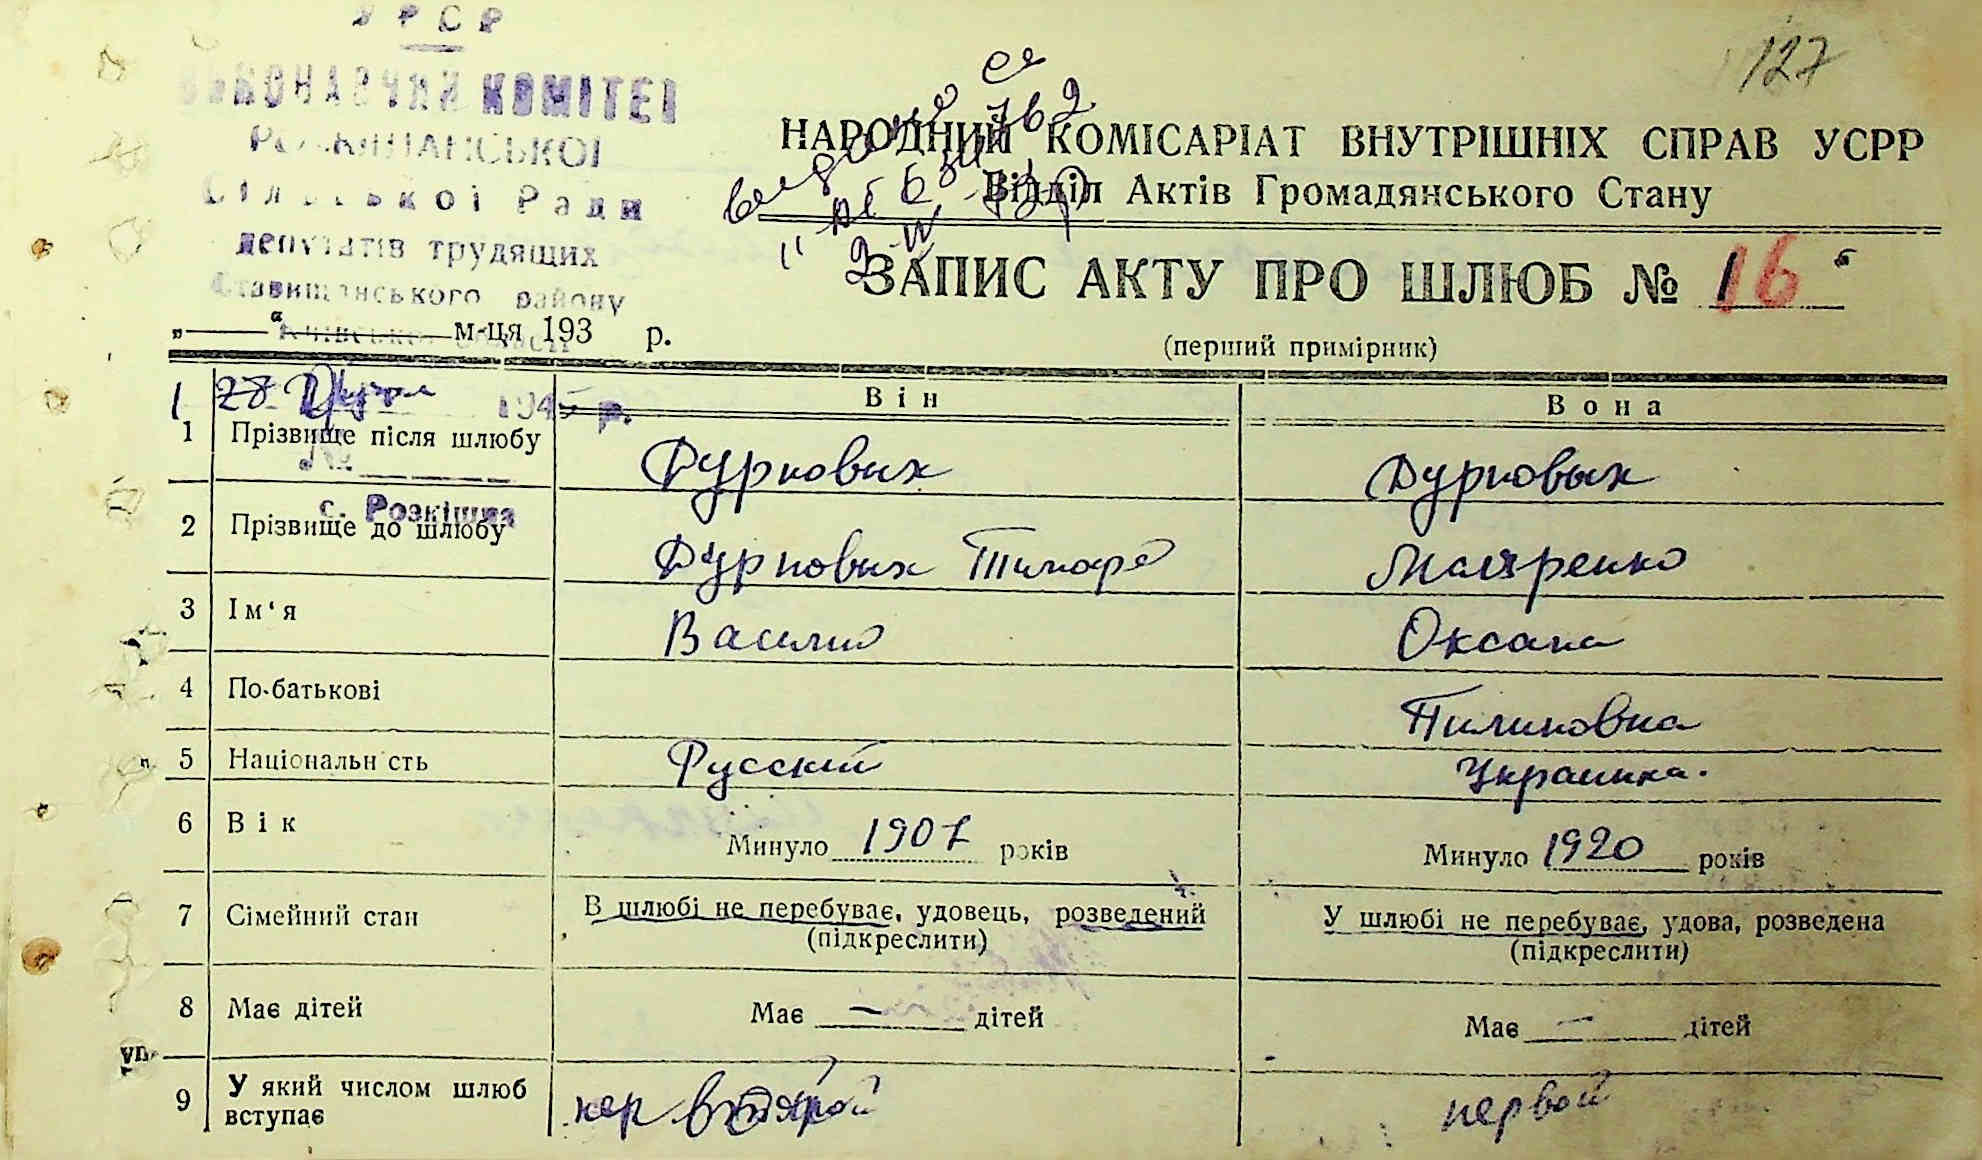 127
УРСР
ВИКОНАВЧИЙ КОМІТЕТ
РОЗКІШАНСЬКОЇ
Сільської Ради
депутатів трудящих
Ставищанського району
Київської області
НАРОДНИЙ КОМІСАРІАТ ВНУТРІШНІХ СПРАВ УСРР
Відділ Актів Громадянського Стану
ЗАПИС АКТУ ПРО ШЛЮБ № 16
„ “ м-ця 193 р.
(перший примірник)
28 1945 р.
№
с. Розкішна
Він Вона
1 Прізвище після шлюбу Дурновых Дурновых
2 Прізвище до шлюбу Дурновых Маляренко
3 Ім‘я Василий Оксана
4 По-батькові Пилиповна
5 Національність Русский Украинка.
6 Вік Минуло 1907 років Минуло 1920 років
7 Сімейний стан В шлюбі не перебуває, удовець, розведений У шлюбі не перебуває, удова, розведена
(підкреслити) (підкреслити)
8 Має дітей Має — дітей Має — дітей
9 У який числом шлюб вступає второй первой